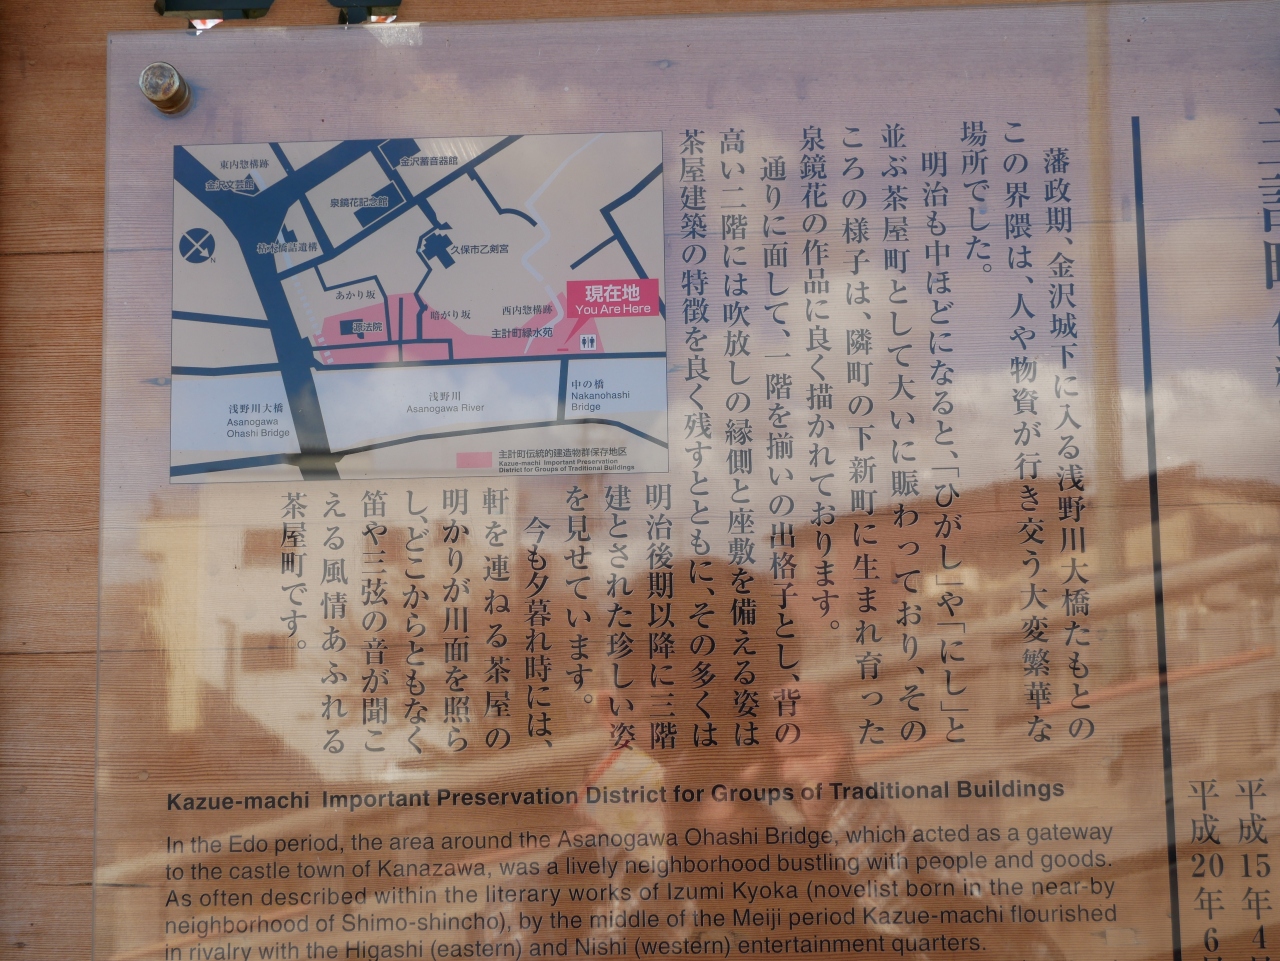 平成15年4
平成20年6
藩政期、金沢城下に入る浅野川大橋たもとの
この界隈は、人や物資が行き交う大変繁華な
場所でした。
明治も中ほどになると、「ひがし」や「にし」と
並ぶ茶屋町として大いに賑わっており、その
ころの様子は、隣町の下新町に生まれ育った
泉鏡花の作品に良く描かれております。
通りに面して、一階を揃いの出格子とし、背の
高い二階には吹放しの縁側と座敷を備える姿は
茶屋建築の特徴を良く残すとともに、その多くは
明治後期以降に三階
建とされた珍しい姿
を見せています。
今も夕暮れ時には、
軒を連ねる茶屋の
明かりが川面を照ら
し、どこからともなく
笛や三弦の音が聞こ
える風情あふれる
茶屋町です。
東内惣構跡
金沢文芸館
金沢蓄音器館
泉鏡花記念館
枯木橋詰遺構
久保市乙剣宮
N
あかり坂
暗がり坂
源法院
西内惣構跡
主計町緑水苑
現在地
You Are Here
浅野川大橋
Asanogawa
Ohashi Bridge
浅野川
Asanogawa River
中の橋
Nakanohashi
Bridge
主計町伝統的建造物群保存地区
Kazue-machi Important Preservation
District for Groups of Traditional Buildings
Kazue-machi Important Preservation District for Groups of Traditional Buildings
In the Edo period, the area around the Asanogawa Ohashi Bridge, which acted as a gateway
to the castle town of Kanazawa, was a lively neighborhood bustling with people and goods.
As often described within the literary works of Izumi Kyoka (novelist born in the near-by
neighborhood of Shimo-shincho), by the middle of the Meiji period Kazue-machi flourished
in rivalry with the Higashi (eastern) and Nishi (western) entertainment quarters.